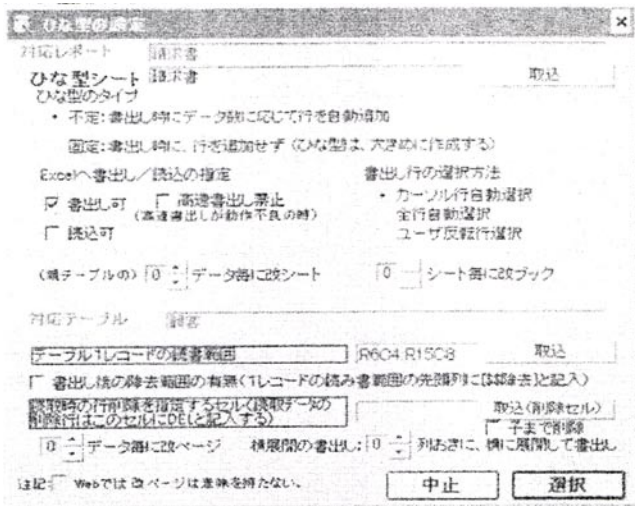 ひな型の設定
対応レポート 請求書
ひな型シート 請求書 取込
ひな型のタイプ
・ 不定: 書出し時にデータ数に応じて行を自動追加
固定: 書出し時に、行を追加せず(ひな型は、大きめに作成する)
Excelへ書出し/読込の指定 書出し行の選択方法
書出し可 高速書出し禁止 ・ カーソル行自動選択
(高速書出しが動作不良の時) 全行自動選択
読込可 ユーザ反転行選択
(親テーブルの) 0 データ毎に改シート 0 シート毎に改ブック
対応テーブル 顧客
テーブル1レコードの読書範囲 R6C4:R15C8 取込
書出し後の除去範囲の有無(1レコードの読み書範囲の先頭列に[$$除去]と記入)
読取時の行削除を指定するセル(読取データの 取込(削除セル)
削除行はこのセルにDELと記入する) 子まで削除
0 データ毎に改ページ 横展開の書出し: 0 列おきに、横に展開して書出し
注記: Webでは 改ページは意味を持たない。 中止 選択